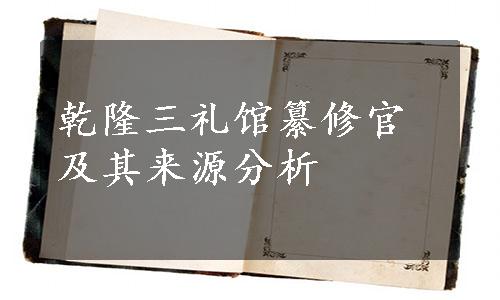 乾隆三礼馆纂修官
及其来源分析